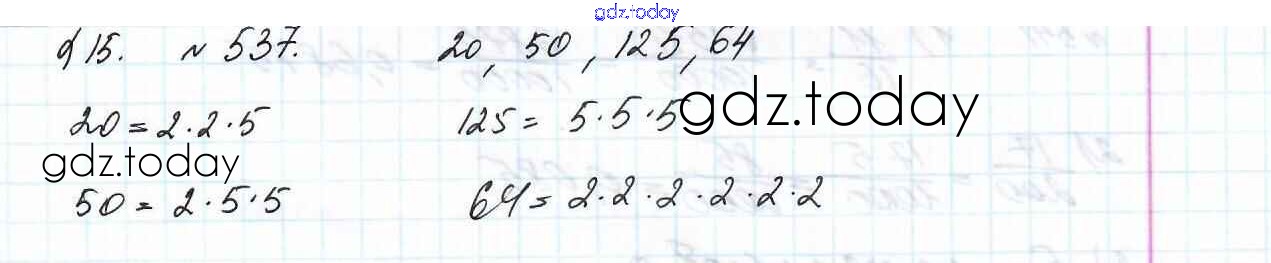 gdz.today
§ 15. № 537. 20, 50, 125, 64
20 = 2·2·5 125 = 5·5·5 gdz.today
gdz.today
50 = 2·5·5 64 = 2·2·2·2·2·2